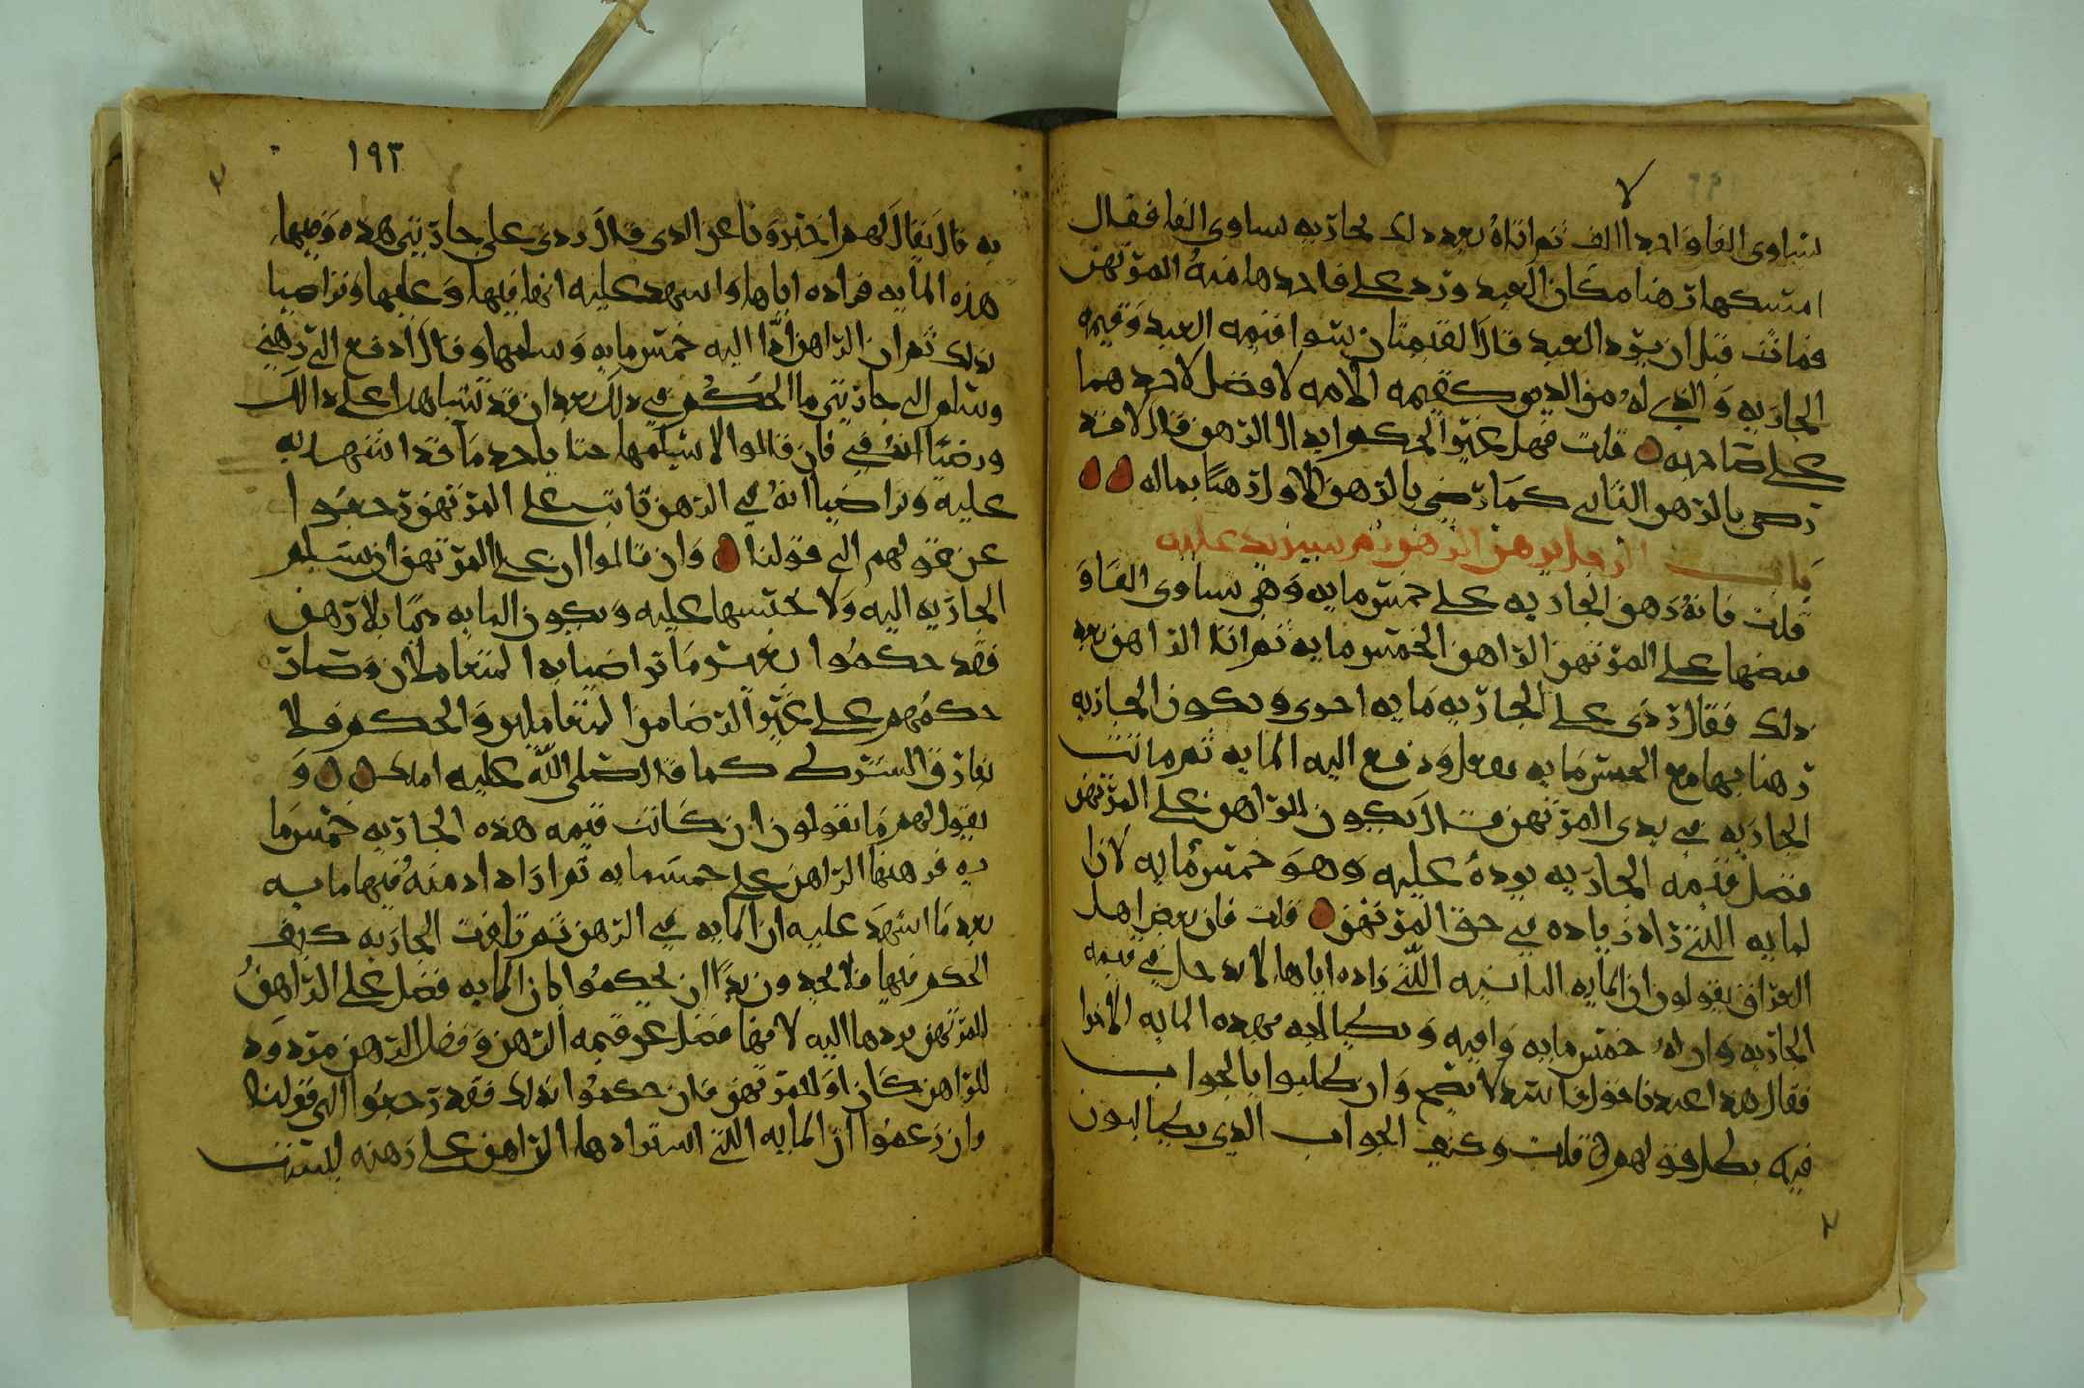 يساوى الفا واحدا الف ثم اتاه بعد ذلك بجاريه تساوى الفا فقال
امسكها رهنا مكان العبد ورد على فاخدها منه المرتهن
فماتت قبل ان يرد العبد قال القيمتان سوا قيمه العبد وقيمه
الجاريه والذي له من الدين كقيمه الامه لا فضل لاحدهما
على صاحبه قلت فهل غير الحكم ابدال الرهن قال لا قد
رضى بالرهن الثاني كما رضي بالرهن الاول رهنا بماله
باب الرجل يرهن الرهن ثم يستزيد عليه
قلت فانه رهن الجاريه على خمس مايه وهي تساوى الفا و
قبضها على المرتهن الراهن الخمس مايه ثم اتا الراهن بعد
ذلك فقال زدنى على الجاريه مايه اخرى وتكون الجاريه
رهنا بها مع الخمس مايه ففعل ودفع اليه المايه ثم ماتت
الجاريه في يدى المرتهن قال يكون للراهن على المرتهن
فضل قيمه الجاريه يوده عليه وهو خمس مايه لان ا
لمايه اللتي زاد زياده في حق المرتهن قلت فان بعض اهل
العراق يقولون ان المايه الثانيه اللتي زاده اياها لا تدخل في قيمه
الجاريه وان له خمس مايه وافيه ويطالبه بهذه المايه الاخرا
فقال هذا عندنا قول فاسد لا يصح وان طلبوا بالجواب
فيه بطل قولهم قلت وكيف الجواب الذي يطالبون
١٩٣
به قال يقال لهم اخبرونا عن الذي قال زدنى على جاريتي هذه وقبضها
هذه المايه فزاده اياها واشهد عليه انها فيها وعليها وتراضيا
بذلك ثم ان الراهن ادا اليه خمس مايه وسلمها وقال ادفع الي رهني
وسلم الي جاريتي ما الحكم في ذلك بعد ان قد تشاهدا على ذالك
ورضيا انه في فان قالوا لا يسلمها حتا ياخد ما قد اشهد له
عليه وتراضيا انه في الرهن ثابت على المرتهن رجعوا
عن قولهم الى قولنا وان قالوا ان على المرتهن ان يسلم
الجاريه اليه ولا يحتبسها عليه ويكون المايه دينا بلا رهن
فقد حكموا بغير ما تراضيا به المتعاملان وصار
حكمهم على غير التراضى من المتعاملين والحكم فلا
يفارق الشرط كما قال صلى الله عليه املك و
يقول لهم ما تقولون ان كانت قيمه هذه الجاريه خمس ما
يه فرهنها الراهن على خمس مايه ثم ازداد منه فيها مايه
بعد ما اشهد عليه ان المايه في الرهن ثم تلفت الجاريه كيف
الحكم فيها فلا يجدون بدا ان يحكموا بان المايه فضل على الراهن
للمرتهن يردها اليه لانها فضل عن قيمه الرهن وفضل الرهن مردود
للراهن كان او للمرتهن فان حكموا بذلك فقد رجعوا الى قولنا
وان زعموا ان المايه اللتي استزادها الراهن على رهنه ليست